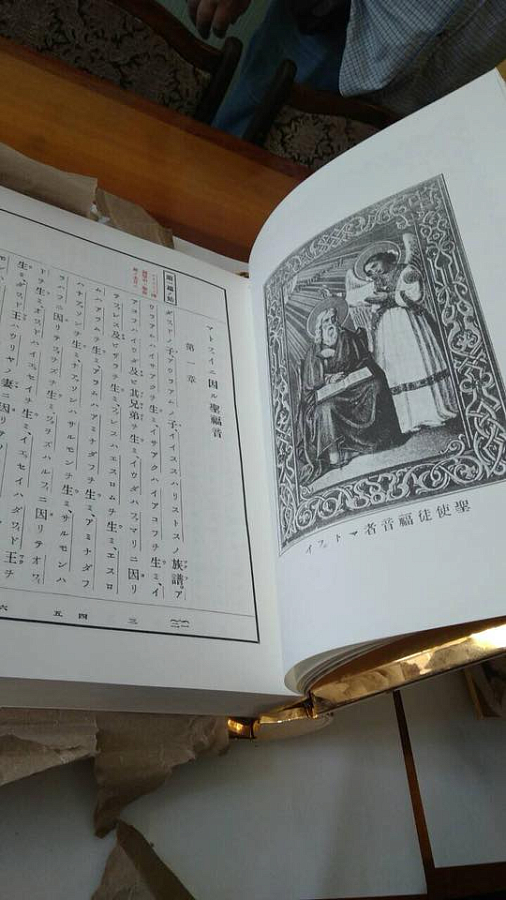 聖使徒福音者マトフェイ
マトフェイニ因ル聖福音
第一章
ダワィドノ子アウラアムノ子、イイススハリストスノ族譜。ア
ウラアムハイサアクヲ生ミ、イサアクハイアコフヲ生ミ、イ
アコフハイウダ及ビ其兄弟ヲ生ミ、イウダハファマリニ因リ
テファレス及ビザラヲ生ミ、ファレスハエスロムヲ生ミ、エスロ
ムハアラムヲ生ミ、アラムハアミナダフヲ生ミ、アミナダフ
ハナアッソンヲ生ミ、ナアッソンハサルモンヲ生ミ、サルモンハ
ラハワニ因リテワォズヲ生ミ、ワォズハルフニ因リテオワィ
ドヲ生ミ、オワィドハイエッセイヲ生ミ、イエッセイハダワィド王ヲ
生ミ、ダワィド王ハウリヤノ妻ニ因リテ
二 三 四 五 六